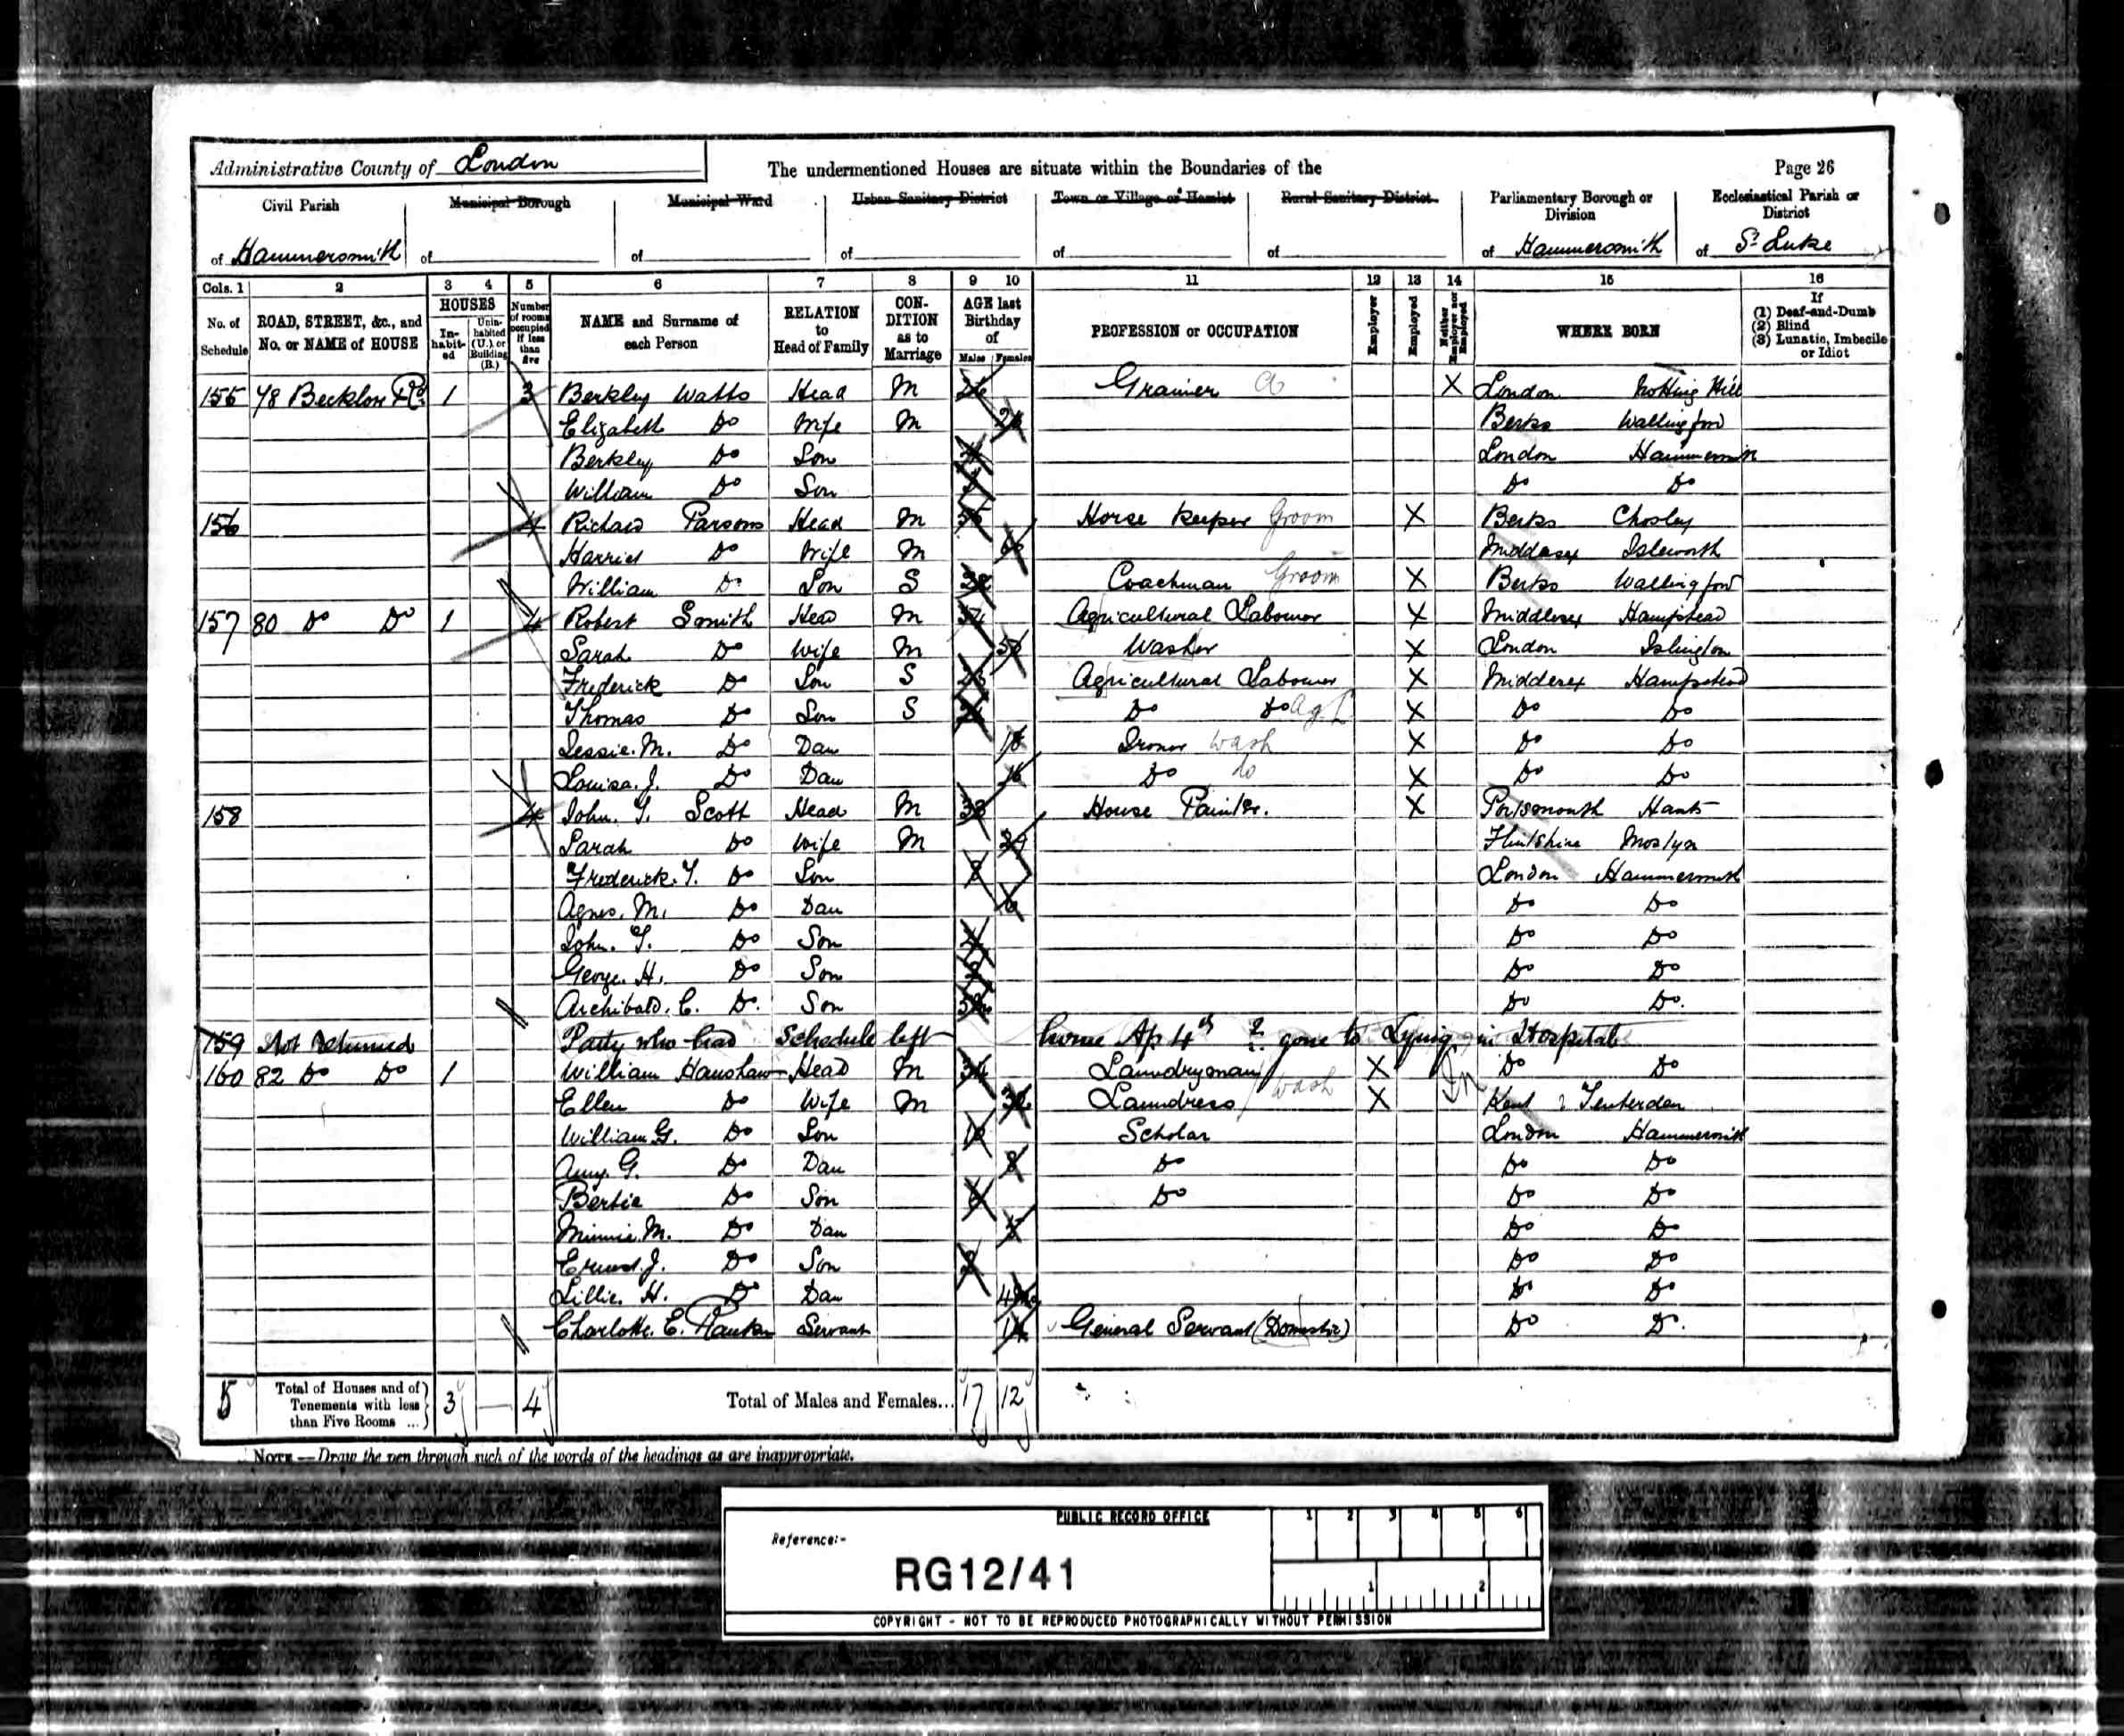 Administrative County of London The undermentioned Houses are situate within the Boundaries of the Page 26
Civil Parish Municipal Borough Municipal Ward Urban Sanitary District Town or Village or Hamlet Rural Sanitary District Parliamentary Borough or Division Ecclesiastical Parish or District
of Hammersmith of of of of of of Hammersmith of St Luke
Cols. 1 2 3 4 5 6 7 8 9 10 11 12 13 14 15 16
No. of Schedule ROAD, STREET, &c., and No. or NAME of HOUSE HOUSES In-habit-ed Unin-habited (U.) or Building (B.) Number of rooms occupied if less than five NAME and Surname of each Person RELATION to Head of Family CON-DITION as to Marriage AGE last Birthday of Males Females PROFESSION or OCCUPATION Employer Employed Neither Employer nor Employed WHERE BORN If (1) Deaf-and-Dumb (2) Blind (3) Lunatic, Imbecile or Idiot
155 78 Becklow Rd 1 3 Berkley Watts Head M 26 Grainer X London Notting Hill
Elizabeth Do Wife M Berks Wallingford
Berkley Do Son London Hammersmith
William Do Son Do Do
156 4 Richard Parsons Head M Horse Keeper Groom X Berks Cholsey
Harriet Do Wife M Middlesex Isleworth
William Do Son S Coachman Groom X Berks Wallingford
157 80 Do Do 1 4 Robert Smith Head M 54 Agricultural Labourer X Middlesex Hampstead
Sarah Do Wife M Washer X London Islington
Frederick Do Son S Agricultural Labourer X Middlesex Hampstead
Thomas Do Son S Do Do Ag. L X Do Do
Jessie. M. Do Dau 18 Ironer Wash X Do Do
Louisa. J. Do Dau 16 Do do X Do Do
158 4 John. T. Scott Head M House Painter. X Portsmouth Hants
Sarah Do Wife M 29 Flintshire Mostyn
Frederick. T. Do Son 8 London Hammersmith
Agnes. M. Do Dau 6 Do Do
John. T. Do Son 4 Do Do
George. H. Do Son 2 Do Do
Archibald. C. Do. Son Do Do.
159 Not Returned Party who had Schedule left home Ap 4th ? gone to Lying in Hospital
160 82 Do Do 1 William Hanshaw Head M 34 Laundryman X Do Do
Ellen Do Wife M Laundress Wash X Kent Tenterden
William G. Do Son 10 Scholar London Hammersmith
Amy. G. Do Dau 8 Do Do Do
Bertie Do Son 6 Do Do Do
Minnie. M. Do Dau Do Do
Ernest. J. Do Son 2 Do Do
Lillie. H. Do Dau Do Do
Charlotte. E. Servant General Servant (Domestic) Do Do.
5 Total of Houses and of Tenements with less than Five Rooms ... 3 — 4 Total of Males and Females... 17 12
NOTE.—Draw the pen through such of the words of the headings as are inappropriate.
PUBLIC RECORD OFFICE 1 2 3 4 5 6
Reference:-
RG12/41 1 2
COPYRIGHT - NOT TO BE REPRODUCED PHOTOGRAPHICALLY WITHOUT PERMISSION